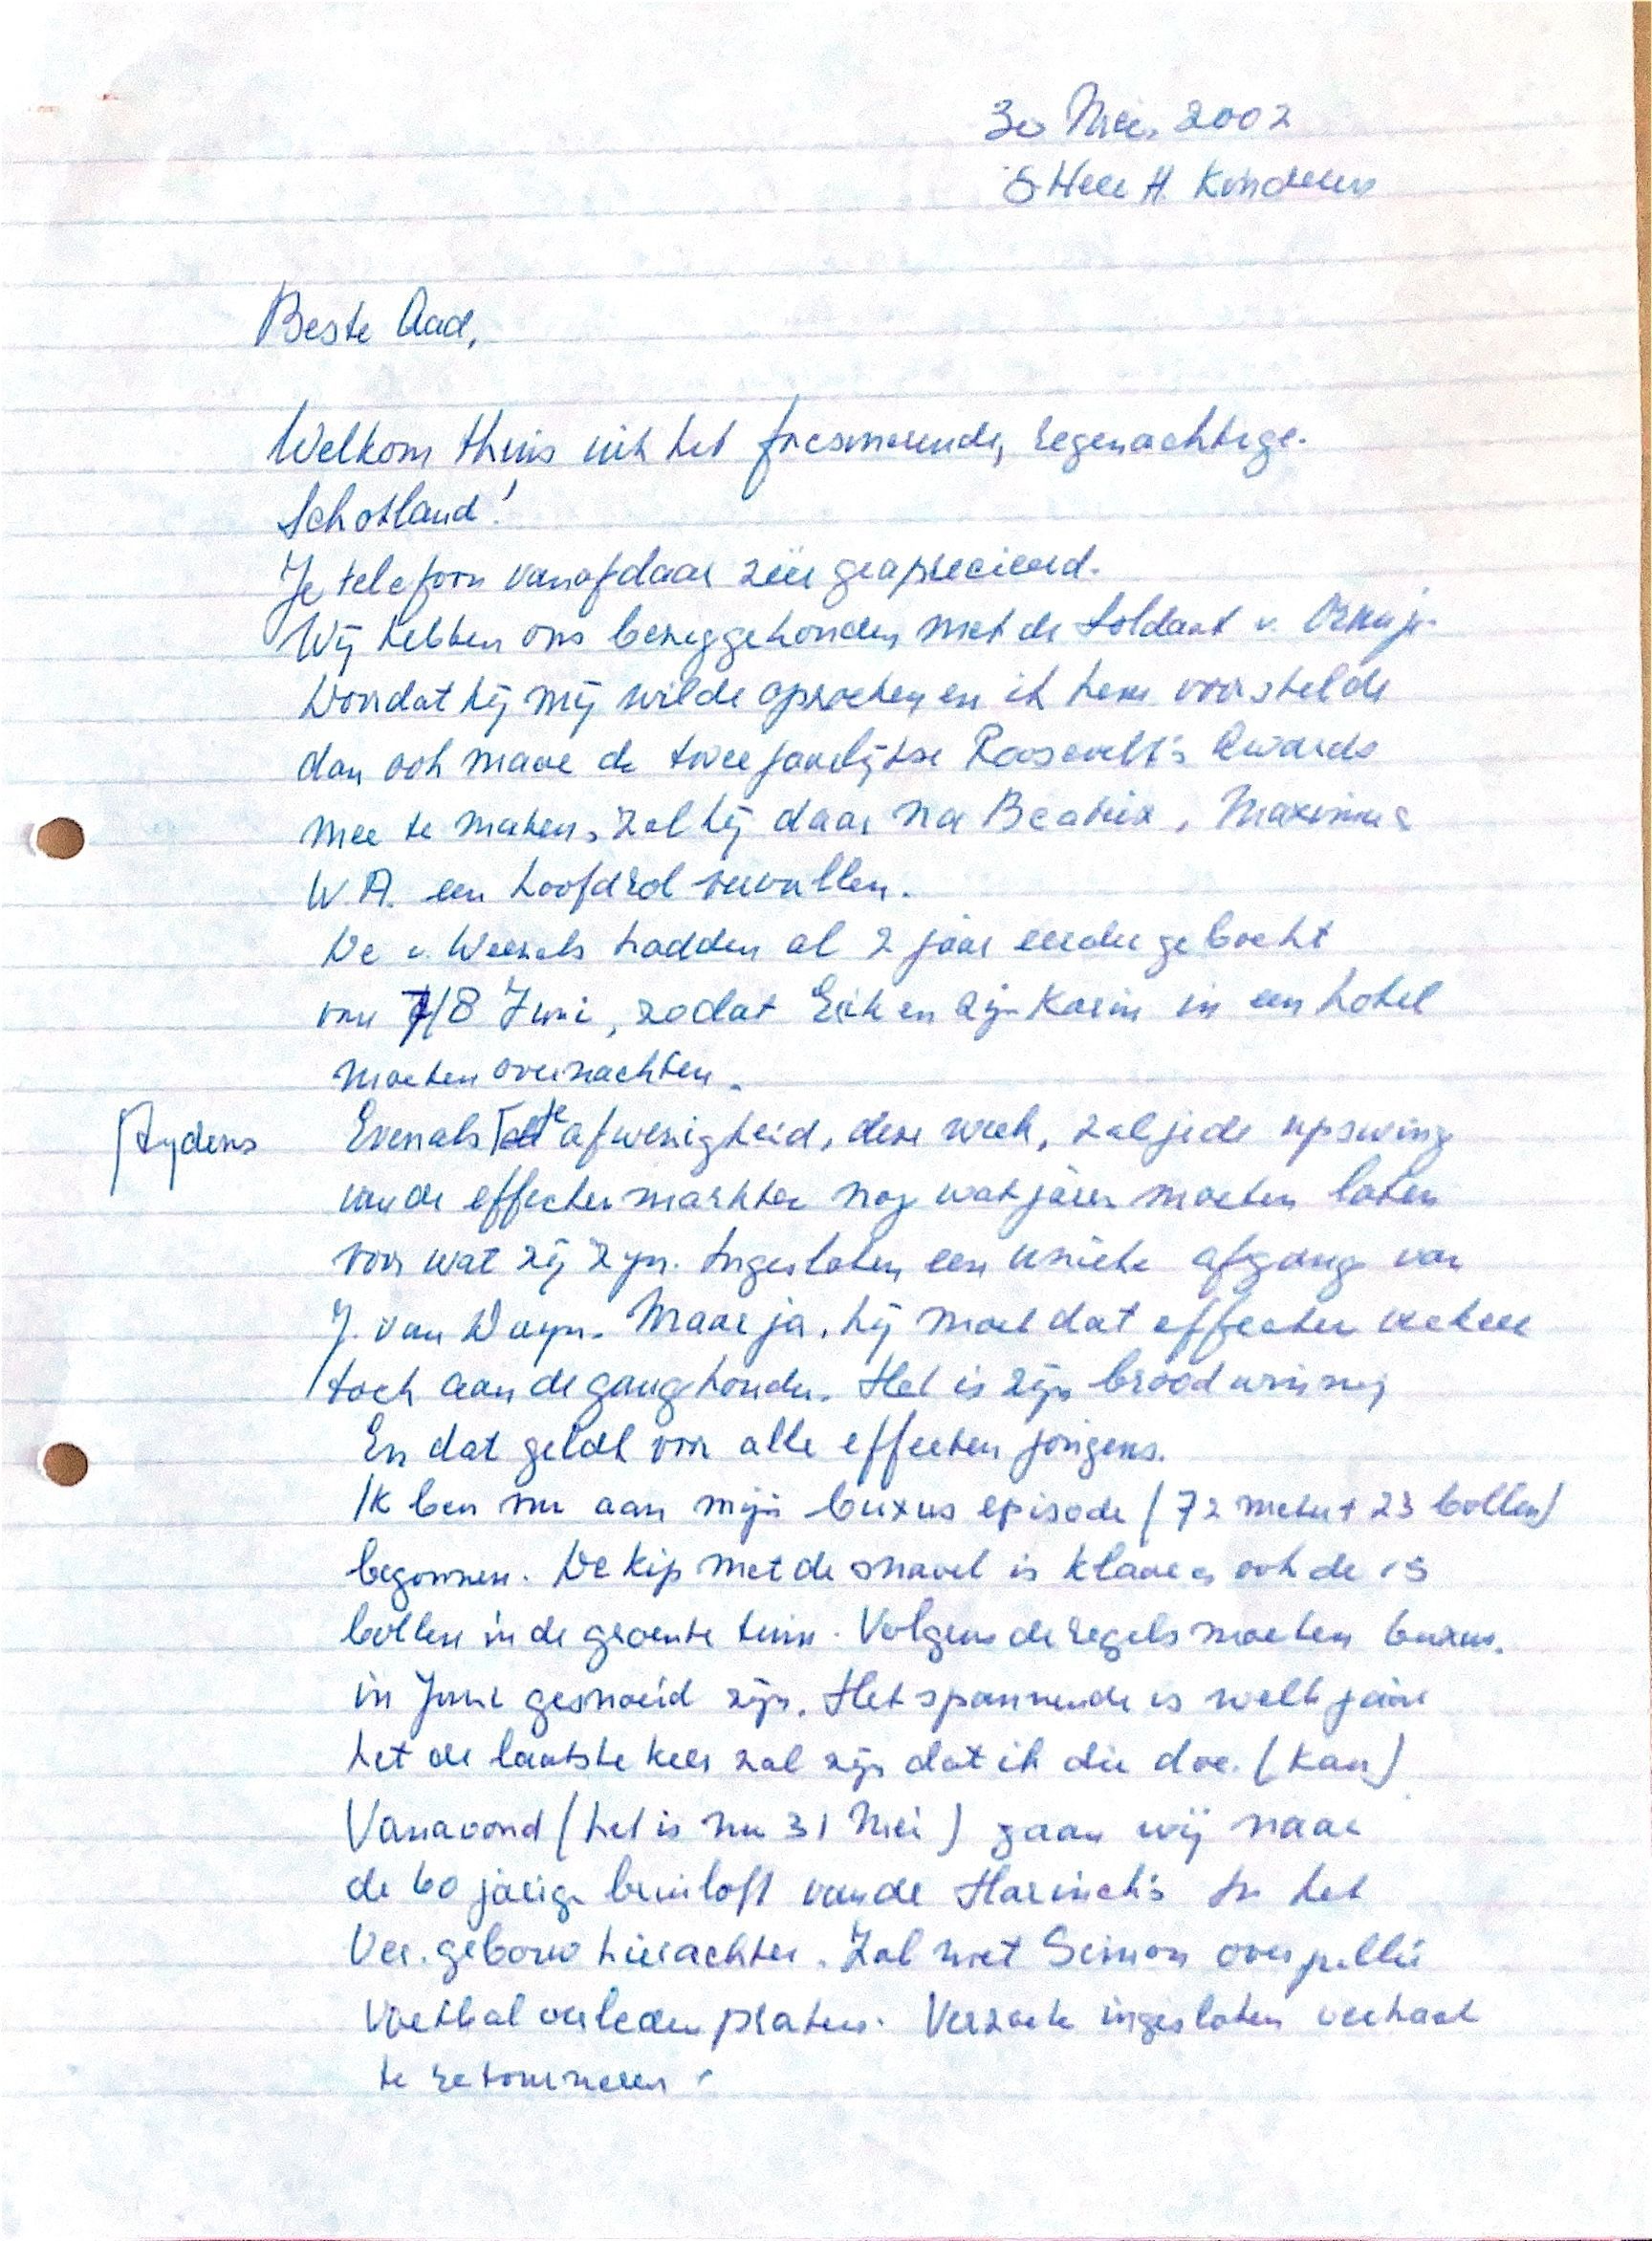 30 Mei, 2002
's Heer H. Kinderen
Beste Aad,
Welkom thuis uit het fascinerende, regenachtige
Schotland!
Je telefoon vanaf daar zéér geaprecieerd.
Wij hebben ons bezig gehouden met de Soldaat v. Oranje.
Doordat hij mij wilde opzoeken en ik hem voorstelde
dan ook maar de twee jaarlijkse Roosevelt's Awards
mee te maken, zal hij daar na Beatrix, Maxima &
W.A. een hoofdrol vervullen.
De v. Weerels hadden al 2 jaar eerder geboekt
van 7/8 Juni, zodat Erik en zijn Karin in een hotel
moeten overnachten.
Evenals afwezigheid, deze week, zal je de upswing
van de effecten markten nog wat jaren moeten laten
voor wat zij zijn. Ingesloten een unieke afgang van
J. van Duyn. Maar ja, hij moet dat effecten verkeer
toch aan de gang houden. Het is zijn broodwinning
En dat geldt voor alle effecten jongens.
Ik ben nu aan mijn buxus episode (72 meter + 23 bollen)
begonnen. De kip met de snavel is klaar en ook de 15
bollen in de groente tuin. Volgens de regels moeten buxus
in Juni gesnoeid zijn. Het spannende is welk jaar
het de laatste keer zal zijn dat ik die doe. (kan)
Vanavond (het is nu 31 Mei) gaan wij naar
de 60 jarige bruiloft van de Harinck's in het
Ver. gebouw hierachter. Zal met Simon over jullie
voetbal verleden praten. Verzoeke ingesloten verhaal
te retourneren.